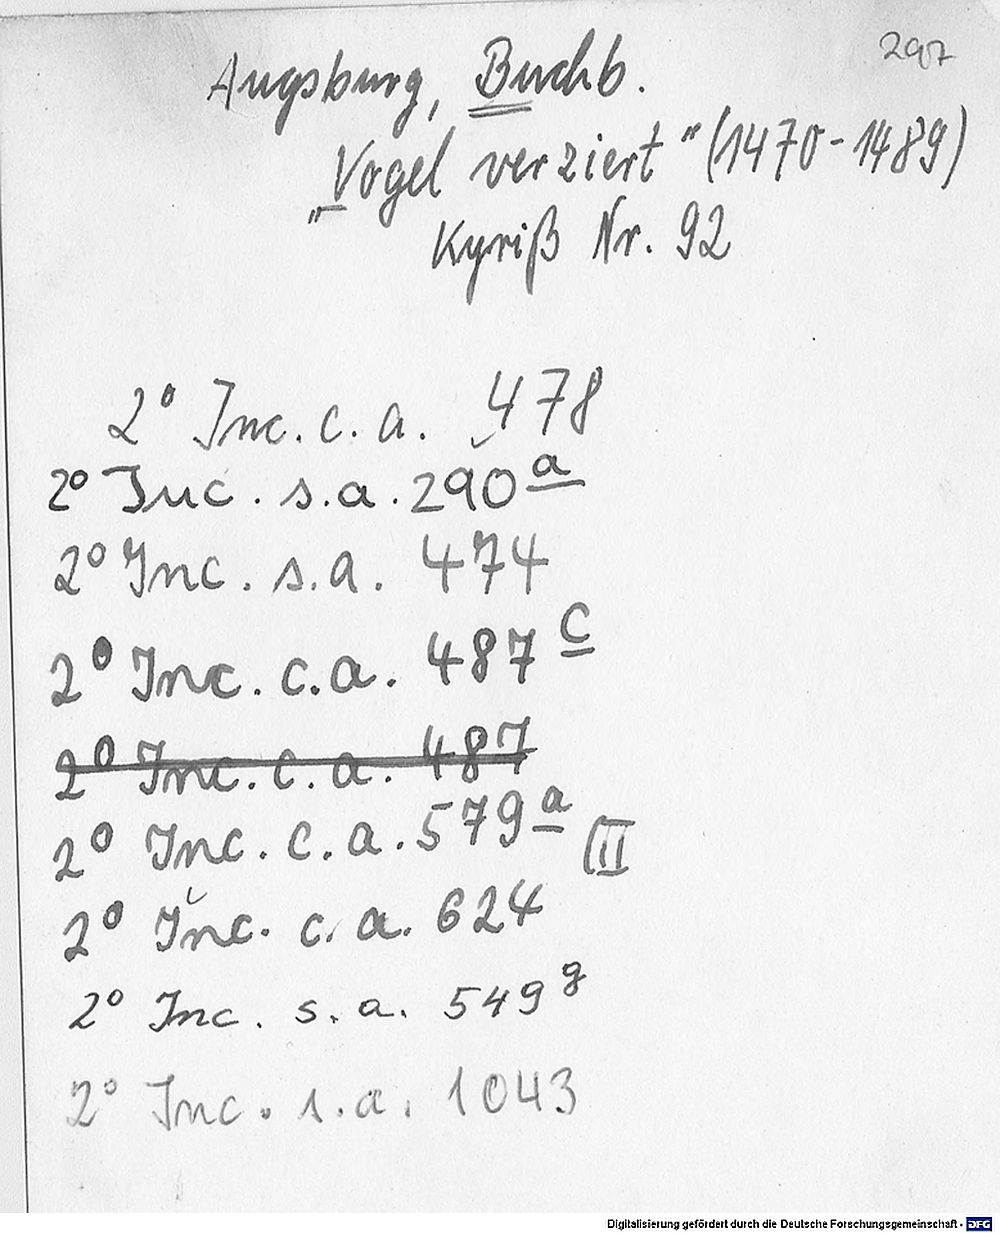 297
Augsburg, Buchb.
„Vogel verziert" (1470-1489)
Kyriß Nr. 92
2° Inc. c. a. 478
2° Inc. s. a. 290 a
2° Inc. s. a. 474
2° Inc. c. a. 487 c
2° Inc. c. a. 487
2° Inc. c. a. 579 a (II
2° Inc. c. a. 624
2° Inc. s. a. 549 g
2° Inc. s. a. 1043
Digitalisierung gefördert durch die Deutsche Forschungsgemeinschaft - DFG